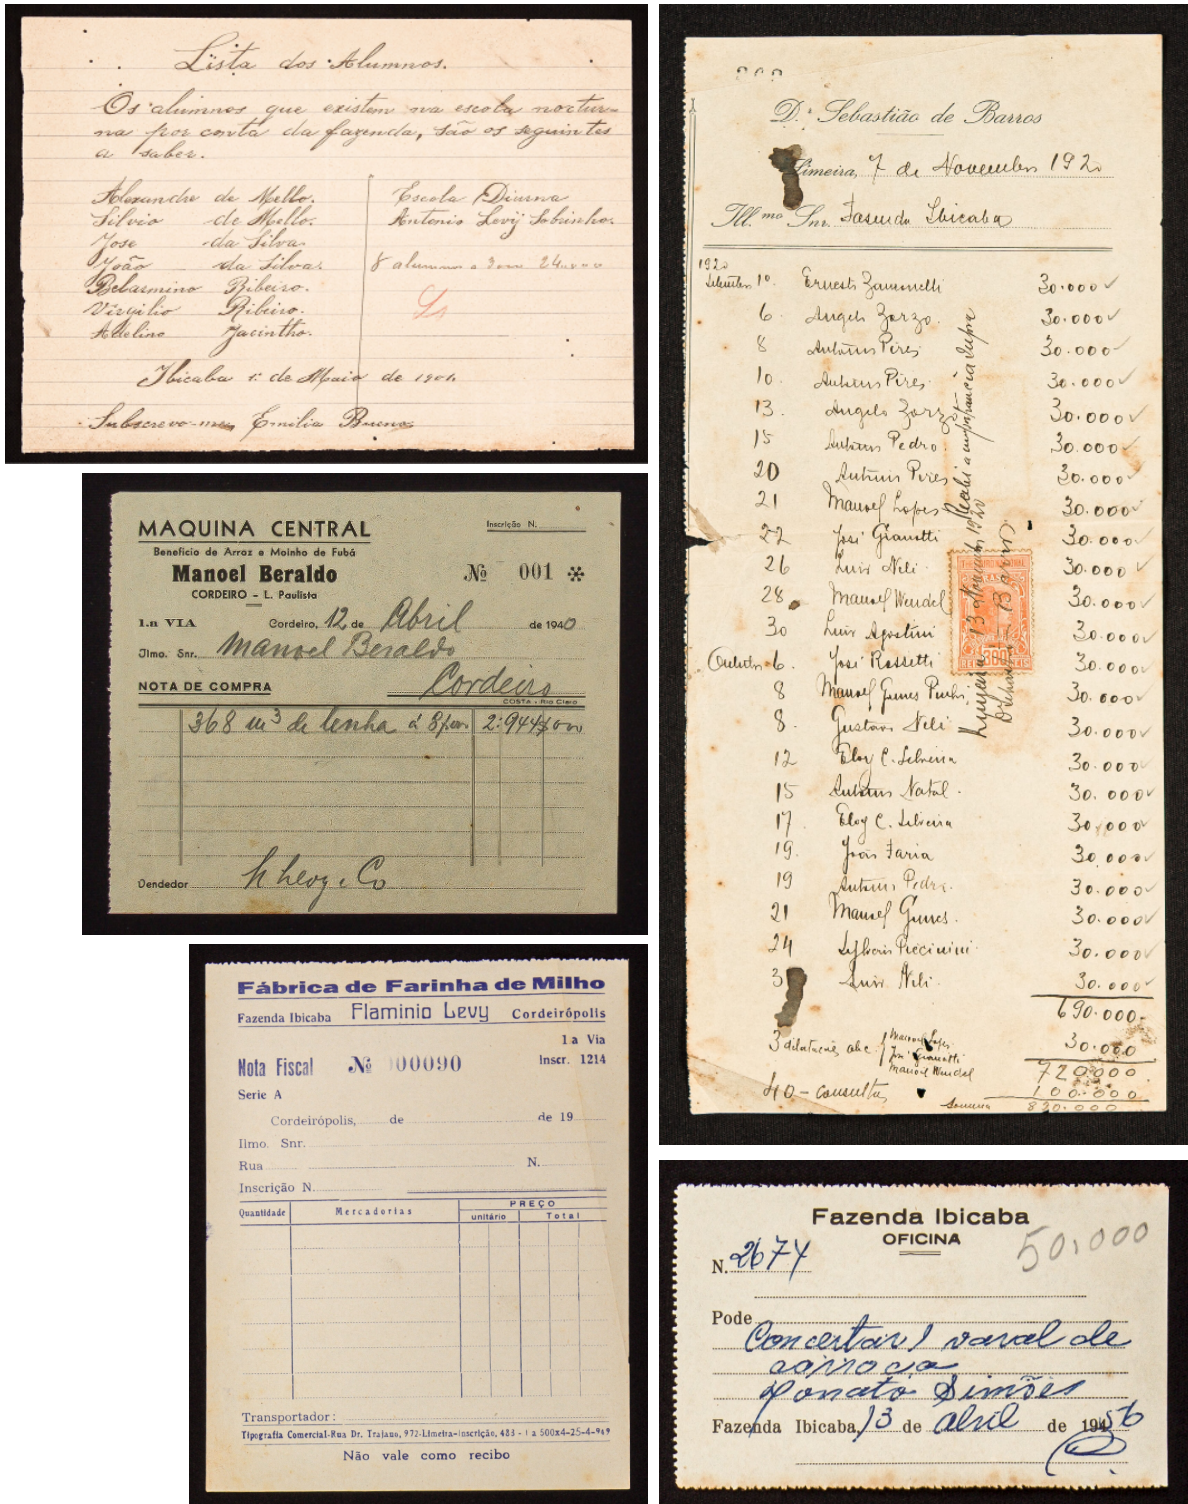 Lista dos Alumnos.
Os alumnos que existem na escola noctur-
na por conta da fazenda, são os seguintes
a saber.
Alexandre de Mello.
Silvio de Mello.
Jose da Silva.
João da Silva.
Belarmino Ribeiro.
Virgilio Ribeiro.
Adelino Jacintho.
Escola Diurna
Antonio Levy Sobrinho.
8 alumnos a 3000 24.000
Ibicaba 1: de Maio de 1901.
Subscrevo-me Emilia Bueno
MAQUINA CENTRAL
Inscrição N.
Beneficio de Arroz e Moinho de Fubá
Manoel Beraldo
Nº 001
CORDEIRO - L. Paulista
1.a VIA Cordeiro, 12 de Abril de 1940
Ilmo. Snr. Manoel Beraldo
NOTA DE COMPRA Cordeiro
COSTA - Rio Claro
368 m3 de lenha á 8$000 2:944$000
Vendedor Levy & Co
Fábrica de Farinha de Milho
Fazenda Ibicaba Flaminio Levy Cordeirópolis
1.a Via
Nota Fiscal Nº 000090 Inscr. 1214
Serie A
Cordeirópolis, de de 19
Ilmo. Snr.
Rua N.
Inscrição N.
Quantidade Mercadorias PREÇO
unitário Total
Transportador:
Tipografia Comercial-Rua Dr. Trajano, 972-Limeira-Inscrição, 483 - 1 a 500x4-25-4-949
Não vale como recibo
Dr. Sebastião de Barros
Limeira, 7 de Novembro 1920
Ill.mo Snr. Fasenda Ibicaba
1920
Setembro 1º Ernesto Zanonelli 30.000
6 Angelo Zorzo. 30.000
8 Antonio Pires 30.000
10. Antonio Pires. 30.000
13. Angelo Zorzo 30.000
15 Antonio Pedro. 30.000
20 Antonio Pires 30.000
21 Manoel Lopes 30.000
22 José Gianotti 30.000
26 Luis Neli. 30.000
28. Manoel Wendel 30.000
30 Luis Agostini 30.000
Outubro 6. José Rossetti 30.000
8 Manoel Gomes 30.000
8. Gustavo Neli 30.000
12 Eloy C. Silveira 30.000
15 Antonio Natal. 30.000
17. Eloy C. Silveira 30.000
19. João Faria 30.000
19 Antonio Pedro. 30.000
21 Manoel Gomes. 30.000
24 Piccinini 30.000
3 Luis Neli. 30.000
690.000
3 Manoel Lopes 30.000
José Gianotti
Manoel Wendel
720.000
40 - consultas 100.000
Somma 820.000
Recebi a importancia supra
Limeira 13 Novembro 1920
Barros
BRASIL
300
REIS
Fazenda Ibicaba
OFICINA
50,000
N. 2674
Pode
Concertar 1 varal de
carroça
Donato Simões
Fazenda Ibicaba, 13 de abril de 1956